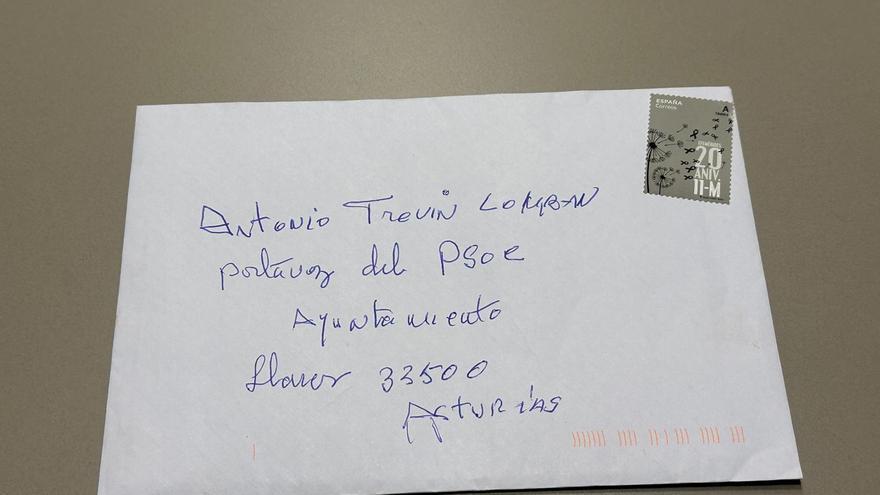 ESPAÑA
Correos
A
20
ANIV.
11-M
Antonio Trevin Lomban
portavoz del PSOE
Ayuntamiento
Llanes 33500
Asturias